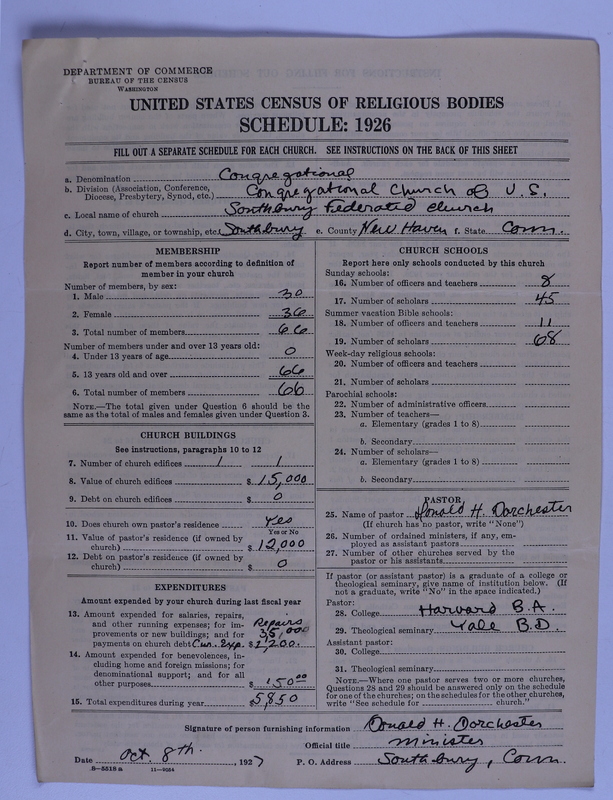 DEPARTMENT OF COMMERCE
BUREAU OF THE CENSUS
WASHINGTON
UNITED STATES CENSUS OF RELIGIOUS BODIES
SCHEDULE: 1926
FILL OUT A SEPARATE SCHEDULE FOR EACH CHURCH. SEE INSTRUCTIONS ON THE BACK OF THIS SHEET
a. Denomination Congregational
b. Division (Association, Conference, Diocese, Presbytery, Synod, etc.) Congregational Church of U.S.
c. Local name of church Southbury Federated church
d. City, town, village, or township, etc. Southbury e. County New Haven f. State Conn.
MEMBERSHIP
Report number of members according to definition of
member in your church
Number of members, by sex:
1. Male 30
2. Female 36
3. Total number of members 66
Number of members under and over 13 years old:
4. Under 13 years of age 0
5. 13 years old and over 66
6. Total number of members 66
NOTE.—The total given under Question 6 should be the
same as the total of males and females given under Question 3.
CHURCH BUILDINGS
See instructions, paragraphs 10 to 12
7. Number of church edifices 1 1
8. Value of church edifices $ 15,000
9. Debt on church edifices $ 0
10. Does church own pastor's residence Yes
Yes or No
11. Value of pastor's residence (if owned by
church) $ 12,000
12. Debt on pastor's residence (if owned by
church) $ 0
EXPENDITURES
Amount expended by your church during last fiscal year
13. Amount expended for salaries, repairs,
and other running expenses; for im- Repairs
provements or new buildings; and for
payments on church debt Cur. Exp. $ 2,200.
14. Amount expended for benevolences, in-
cluding home and foreign missions; for
denominational support; and for all
other purposes $ 150.00
15. Total expenditures during year $ 5850
CHURCH SCHOOLS
Report here only schools conducted by this church
Sunday schools:
16. Number of officers and teachers 8
17. Number of scholars 45
Summer vacation Bible schools:
18. Number of officers and teachers 11
19. Number of scholars 68
Week-day religious schools:
20. Number of officers and teachers
21. Number of scholars
Parochial schools:
22. Number of administrative officers
23. Number of teachers—
a. Elementary (grades 1 to 8)
b. Secondary
24. Number of scholars—
a. Elementary (grades 1 to 8)
b. Secondary
PASTOR
25. Name of pastor Donald H. Dorchester
(If church has no pastor, write "None")
26. Number of ordained ministers, if any, em-
ployed as assistant pastors
27. Number of other churches served by the
pastor or his assistants
If pastor (or assistant pastor) is a graduate of a college or
theological seminary, give name of institution below. (If
not a graduate, write "No" in the space indicated.)
Pastor:
28. College Harvard B.A.
29. Theological seminary Yale B.D.
Assistant pastor:
30. College
31. Theological seminary
NOTE.—Where one pastor serves two or more churches,
Questions 28 and 29 should be answered only on the schedule
for one of the churches; on the schedules for the other churches,
write "See schedule for church."
Signature of person furnishing information Donald H. Dorchester
Official title Minister
Date Oct. 8th. , 1927 P. O. Address Southbury, Conn.
B—5518 a 11—9034